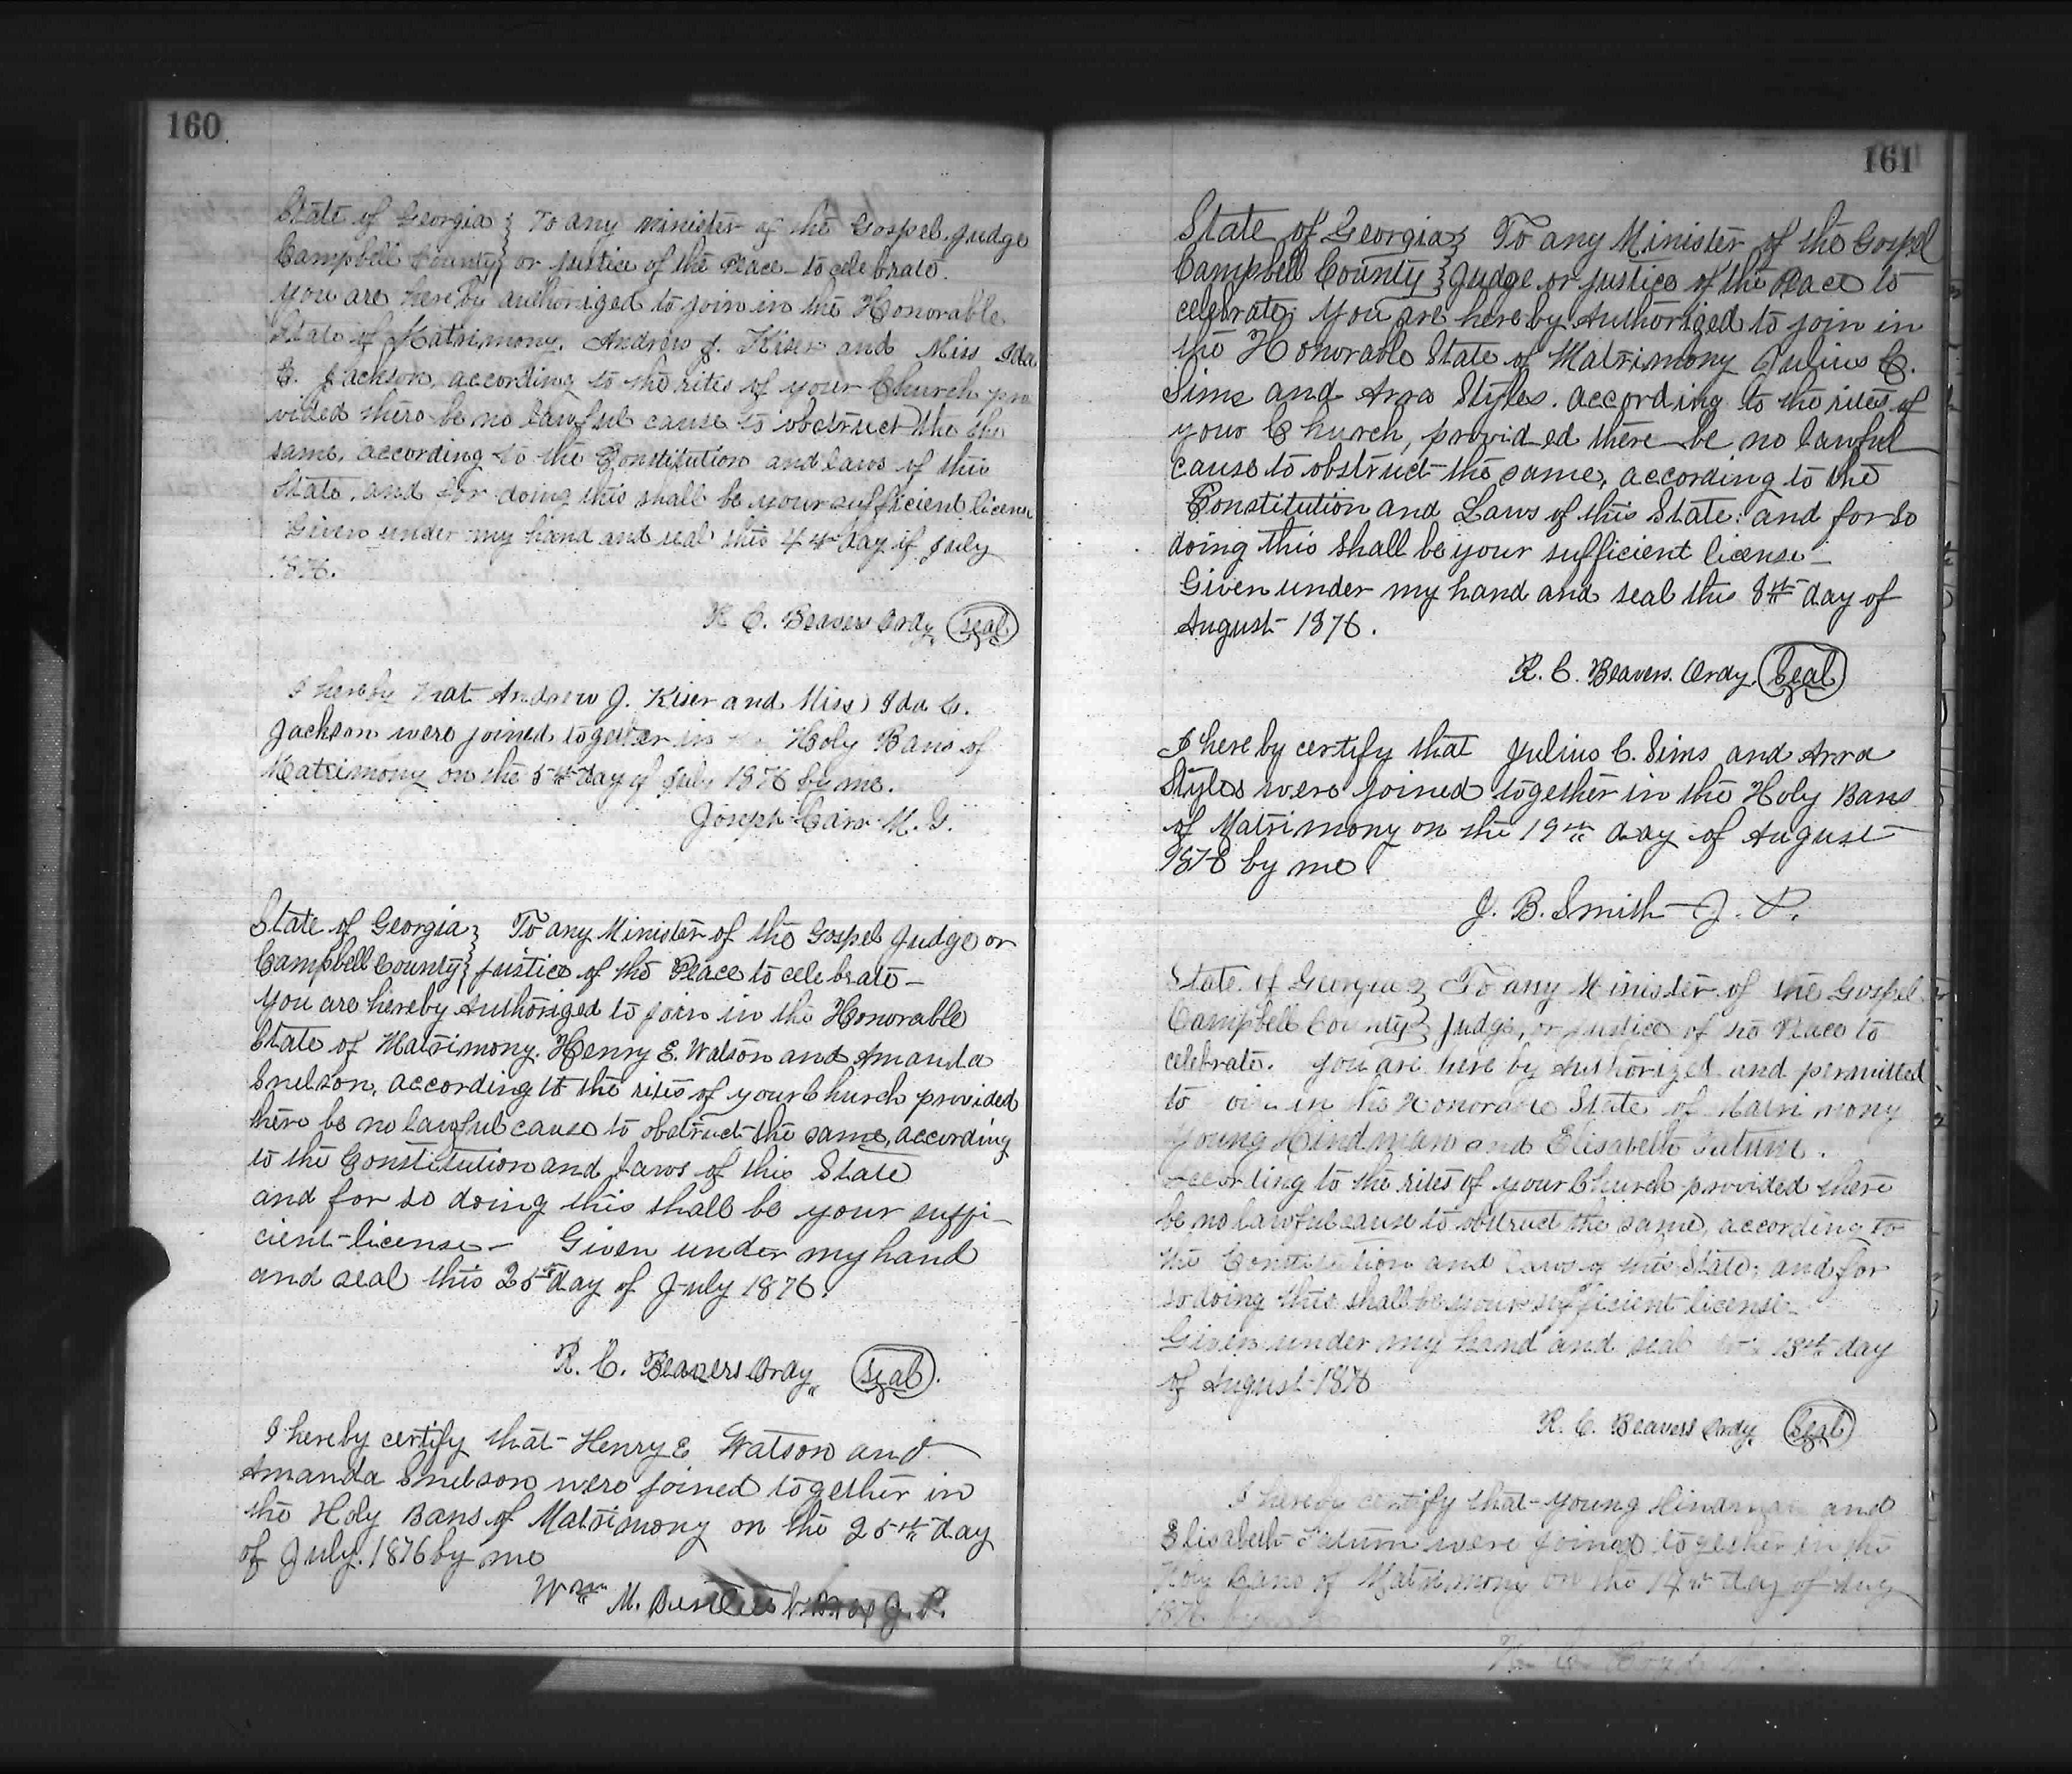 160
State of Georgia } To any Minister of the Gospel, Judge
Campbell County } or Justice of the Peace to celebrate.
You are hereby authorized to join in the Honorable
State of Matrimony. Andrew J. Kiser and Miss Ida
C. Jackson, according to the rites of your Church pro
vided there be no lawful cause to obstruct the the
same, according to the Constitution and laws of this
State, and for doing this shall be your sufficient license
Given under my hand and seal this 4th day of July
1876.
R. C. Beavers Ordy. Seal
I hereby that Andrew J. Kiser and Miss Ida C.
Jackson were joined together in the Holy Bans of
Matrimony on the 5th day of July 1876 by me.
Joseph Carr M. G.
State of Georgia } To any Minister of the Gospel Judge or
Campbell County } Justice of the Peace to celebrate –
You are hereby Authorized to join in the Honorable
State of Matrimony. Henry E. Watson and Amanda
Snelson, according to the rites of your Church provided
there be no lawful cause to obstruct the same, according
to the Constitution and Laws of this State
and for so doing this shall be your suffi–
cient license – Given under my hand
and seal this 25th day of July 1876.
R. C. Beavers Ordy. Seal.
I hereby certify that Henry E Watson and
Amanda Snelson were joined together in
the Holy Bans of Matrimony on the 25th day
of July. 1876 by me
Wm M. J. P.
161
State of Georgia } To any Minister of the Gospel
Campbell County } Judge or Justice of the Peace to
celebrate. You are hereby Authorized to join in
the Honorable State of Matrimony Julius C.
Sims and Arra Styles. according to the rites of
your Church, provided there be no lawful
cause to obstruct the same, according to the
Constitution and Laws of this State: and for so
doing this shall be your sufficient license –
Given under my hand and seal this 8th day of
August 1876.
R. C. Beavers. Ordy. Seal
I hereby certify that Julius C. Sims and Arra
Styles were joined together in the Holy Bans
of Matrimony on the 19th day of August
1876 by me
J. B. Smith J. P.
State of Georgia } To any Minister of the Gospel
Campbell County } Judge, or Justice of the Peace to
celebrate. You are hereby Authorized and permitted
to join in the Honorable State of Matrimony
Young Hindman and Elisabeth Tatum.
according to the rites of your Church provided there
be no lawful cause to obstruct the same, according to
the Constitution and Laws of this State; and for
so doing this shall be your sufficient license –
Given under my hand and seal this 13th day
of August 1876
R. C. Beavers Ordy. Seal
I hereby certify that Young Hindman and
Elisabeth Tatum were joined together in the
Holy Bans of Matrimony on the 14th day of Aug
1876 by